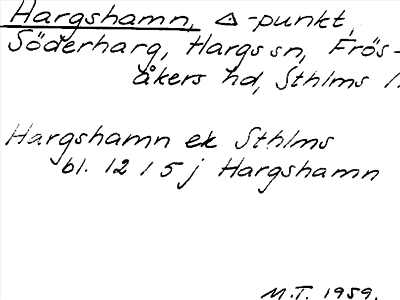 Hargshamn, Δ-punkt,
Söderharg, Hargs sn, Frös-
åkers hd, Sthlms l.
Hargshamn ek Sthlms
bl. 12 I 5 j Hargshamn
M.T. 1959.